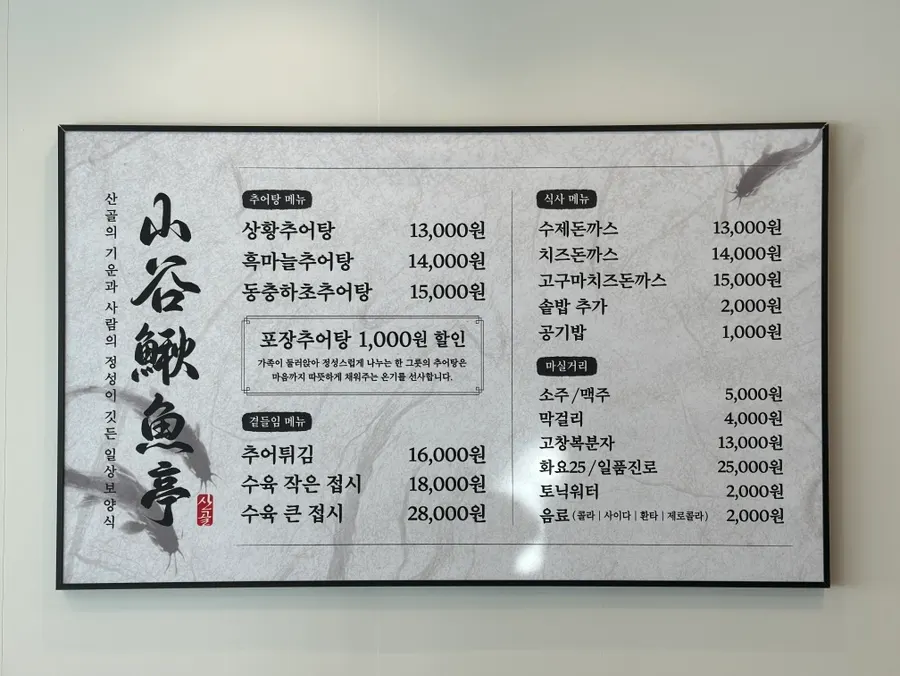 산골의 기운과 사람의 정성이 깃든 일상보양식
山谷鰍魚亭
산골
추어탕 메뉴
상황추어탕 13,000원
흑마늘추어탕 14,000원
동충하초추어탕 15,000원
포장추어탕 1,000원 할인
가족이 둘러앉아 정성스럽게 나누는 한 그릇의 추어탕은
마음까지 따뜻하게 채워주는 온기를 선사합니다.
곁들임 메뉴
추어튀김 16,000원
수육 작은 접시 18,000원
수육 큰 접시 28,000원
식사 메뉴
수제돈까스 13,000원
치즈돈까스 14,000원
고구마치즈돈까스 15,000원
솥밥 추가 2,000원
공기밥 1,000원
마실거리
소주/맥주 5,000원
막걸리 4,000원
고창복분자 13,000원
화요25/일품진로 25,000원
토닉워터 2,000원
음료 (콜라 | 사이다 | 환타 | 제로콜라) 2,000원